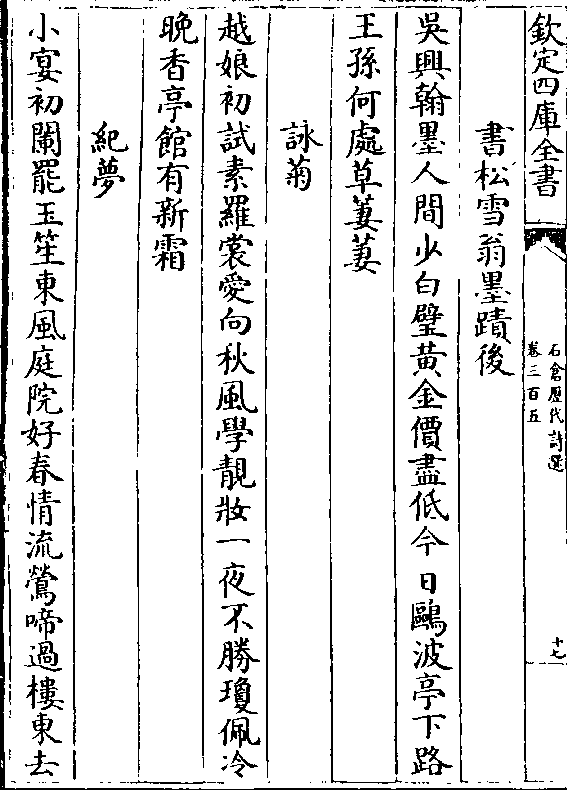 欽定四庫全書
石倉歷代詩選
卷三百五
十七
書松雪翁墨蹟後
吳興翰墨人間少白璧黃金價盡低今日鷗波亭下路
王孫何處草萋萋
詠菊
越娘初試素羅裳愛向秋風學靚妝一夜不勝瓊佩冷
晚香亭館有新霜
紀夢
小宴初闌罷玉笙東風庭院好春情流鶯啼過樓東去